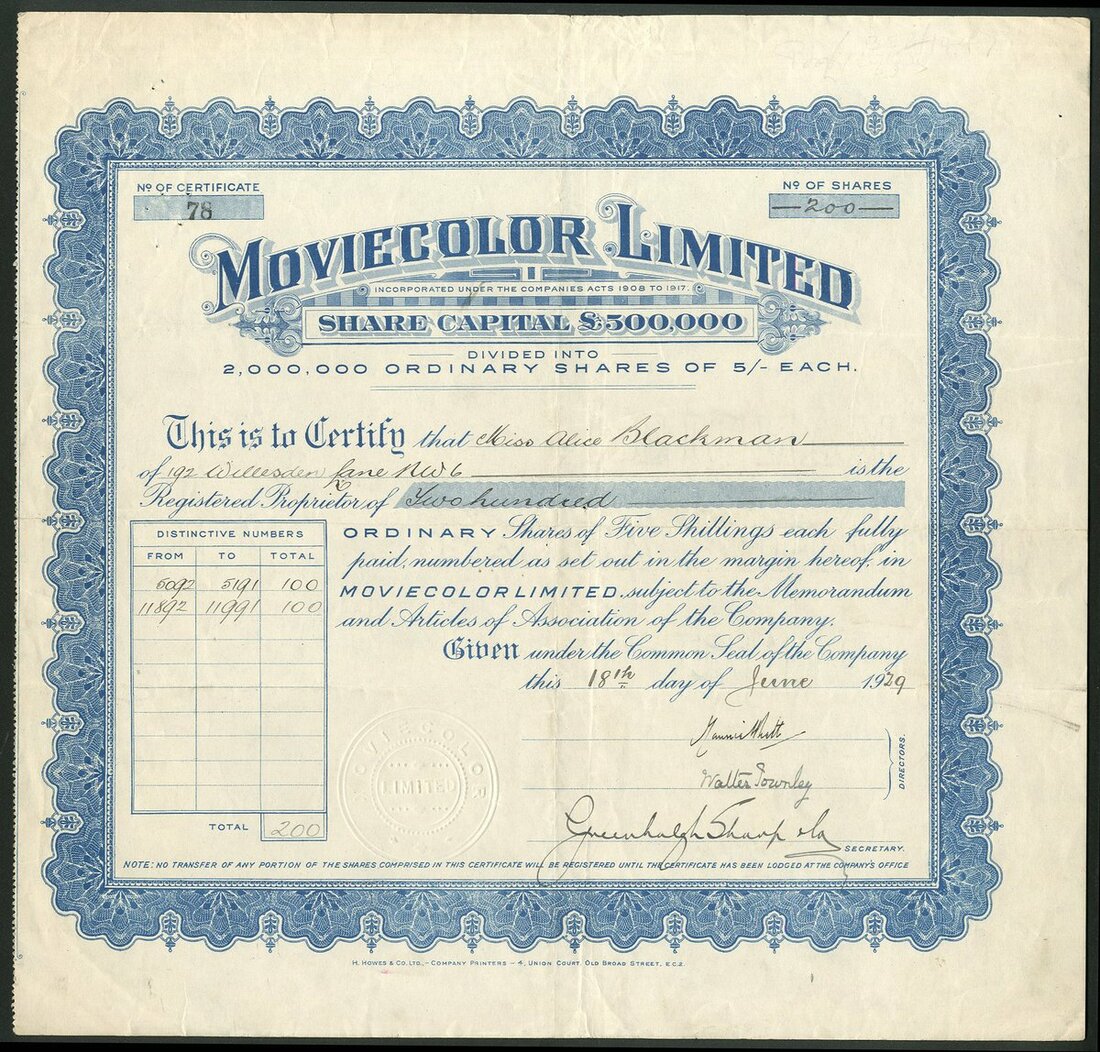 Nº OF CERTIFICATE
78
Nº OF SHARES
200
MOVIECOLOR LIMITED
INCORPORATED UNDER THE COMPANIES ACTS 1908 TO 1917.
SHARE CAPITAL £500,000
DIVIDED INTO
2,000,000 ORDINARY SHARES OF 5/- EACH.
This is to Certify that Miss Alice Blackman
of 192 Willesden Lane NW6 is the
Registered Proprietor of Two hundred
ORDINARY Shares of Five Shillings each fully
paid, numbered as set out in the margin hereof, in
MOVIECOLOR LIMITED, subject to the Memorandum
and Articles of Association of the Company.
Given under the Common Seal of the Company
this 18th day of June 1929
DISTINCTIVE NUMBERS
FROM TO TOTAL
5092 5191 100
11892 11991 100
TOTAL 200
MOVIECOLOR
LIMITED
Walter Townley
DIRECTORS.
Greenhalgh Sharp
SECRETARY.
NOTE: NO TRANSFER OF ANY PORTION OF THE SHARES COMPRISED IN THIS CERTIFICATE WILL BE REGISTERED UNTIL THE CERTIFICATE HAS BEEN LODGED AT THE COMPANY'S OFFICE
H. HOWES & CO. LTD., – COMPANY PRINTERS – 4, UNION COURT. OLD BROAD STREET, E.C.2.